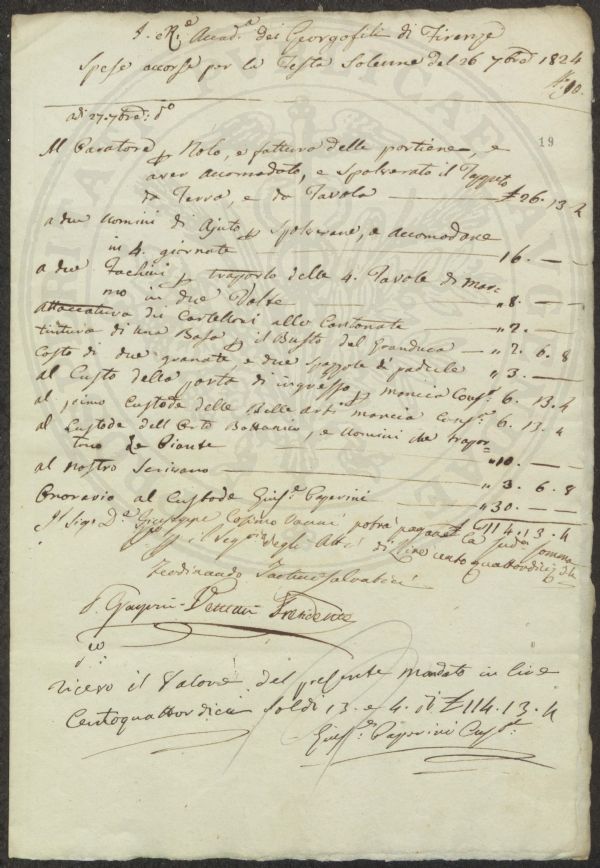 I. e R.e Accad.a dei Georgofili di Firenze
Spese accorse per la Festa Solenne del 26 7bre 1824
N. 10.
19
adi 27. 7bre: do
Al Paratore p Nolo, e fattura delle portiene, e
aver accomodato, e Spolverato il Tappeto
da Terra, e da Tavola £ 26. 13. 4
a due Uomini di Ajuto p Spolverare, e accomodare
in 4. giornate 16. — —
a due Fachini p trasporto delle 4. Tavole di Mar:
mo in due Volte " 8. — —
attaccatura dei Cartelloni alle Cantonate " 2. —
tintura di una Base p il Busto del Granduca " 2. 6. 8
Costo di due granate e due spazzole di padule " 3. — —
al Custo della porta di ingresso p mancia Cons.a 6. 13. 4
al primo Custode delle Belle arti mancia Cons.a 6. 13. 4
al Custode dell'Orto Bottanico, e Uomini che trapor=
tono le Piante " 10. — —
al Nostro Scrivano " 3. 6. 8
Onorario al Custode Gius.e Paperini " 30. — —
£ 114. 13. 4
Il Sig. D.e Giuseppe Cosimo Vanni potrà pagare la sud.a Somma
degli Atti di Lire cento quattordici
Ferdinando Tartini Salvatici
P. Gaspero Presidente
Ricevo il Valore del presente Mandato in lire
Centoquattordici Soldi 13. e 4. di £ 114. 13. 4
Gius.e Paperini Cus.e